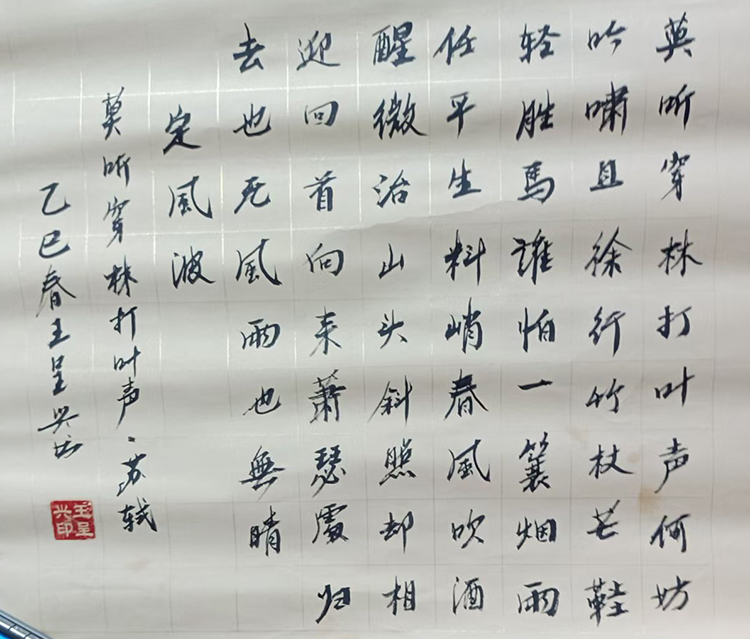 莫听穿林打叶声何妨
吟啸且徐行竹杖芒鞋
轻胜马谁怕一蓑烟雨
任平生料峭春风吹酒
醒微冷山头斜照却相
迎回首向来萧瑟处归
去也无风雨也無晴
定風波
莫听穿林打叶声、苏轼
乙巳春王呈兴书
王呈兴印